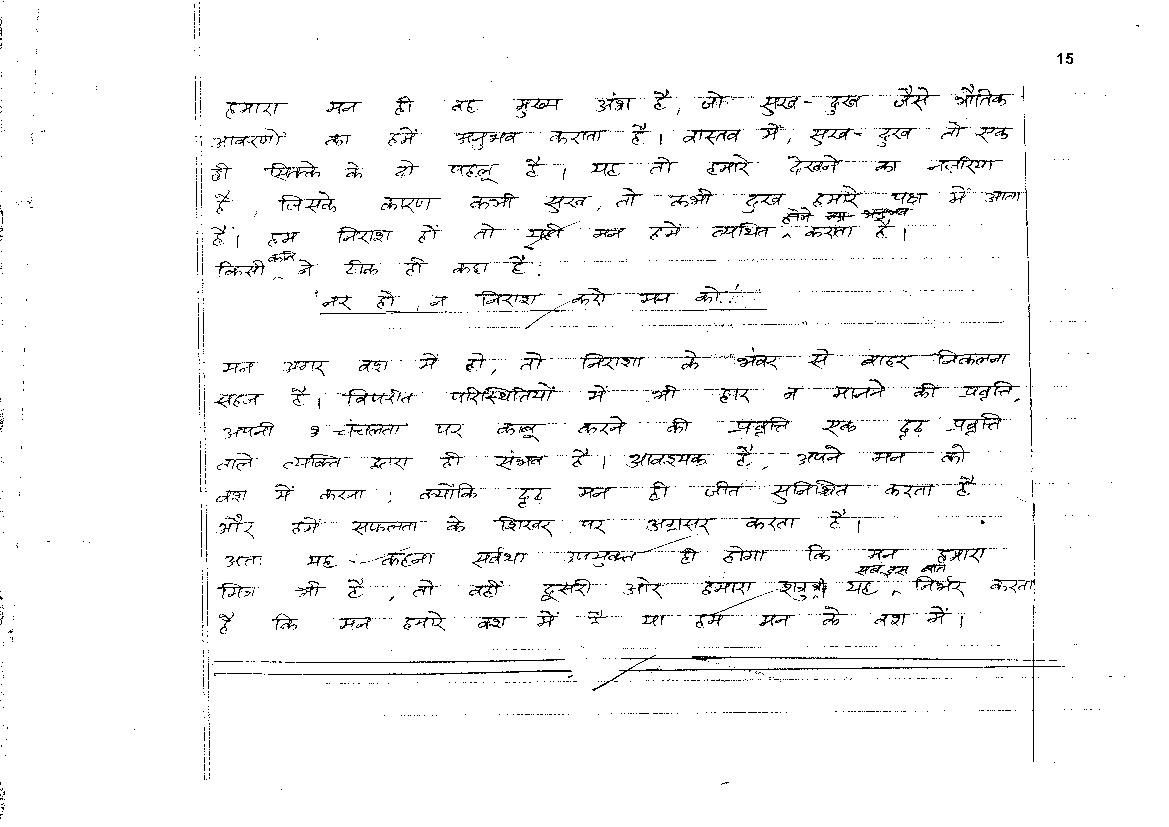 15
हमारा मन ही वह मुख्य अंश है, जो सुख-दुख जैसे भौतिक
आवरणों का हमें अनुभव कराता है। वास्तव में, सुख-दुख तो एक
ही सिक्के के दो पहलू है। यह तो हमारे देखने का नज़रिया
है, जिसके कारण कभी सुख, तो कभी दुख हमारे पक्ष में आता
होने का अनुभव
है। हम निराश हों तो यही मन हमें व्यथित कराता है।
किसी ने ठीक ही कहा है:
'नर हो, न निराश करो मन को।'
मन अगर वश में हो, तो निराशा के भंवर से बाहर निकलना
सहज है। विपरीत परिस्थितियों में भी हार न मानने की प्रवृति,
अपनी चंचलता पर काबू करने की प्रवृति एक दृढ़ प्रवृति
वाले व्यक्ति द्वारा ही संभव है। आवश्यक है, अपने मन को
वश में करना; क्योंकि दृढ़ मन ही जीत सुनिश्चित करता है
और हमें सफलता के शिखर पर अग्रसर करता है।
अतः यह कहना सर्वथा उपयुक्त ही होगा कि मन हमारा
सब इस बात
मित्र भी है, तो वहीं दूसरी ओर हमारा शत्रु भी यह निर्भर करता
है कि मन हमारे वश में है या हम मन के वश में।